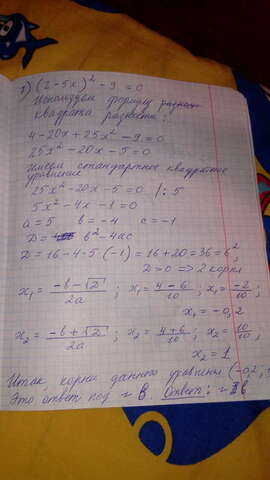 1) (2-5x)² - 9 = 0
Используем формулу
квадрата разности:
4 - 20x + 25x² - 9 = 0
25x² - 20x - 5 = 0
Имеем стандартное квадратное
уравнение
25x² - 20x - 5 = 0 /: 5
5x² - 4x - 1 = 0
a = 5 b = -4 c = -1
D = b² - 4ac
D = 16 - 4·5·(-1) = 16 + 20 = 36 = 6²,
D > 0 => 2 корня
x₁ = (-b - √D)/2a ; x₁ = (4-6)/10 ; x₁ = -2/10 ;
x₁ = -0,2
x₂ = (-b + √D)/2a ; x₂ = (4+6)/10 ; x₂ = 10/10 ;
x₂ = 1
Итак, корни данного уравнения (-0,2;
Это ответ под В. Ответ: